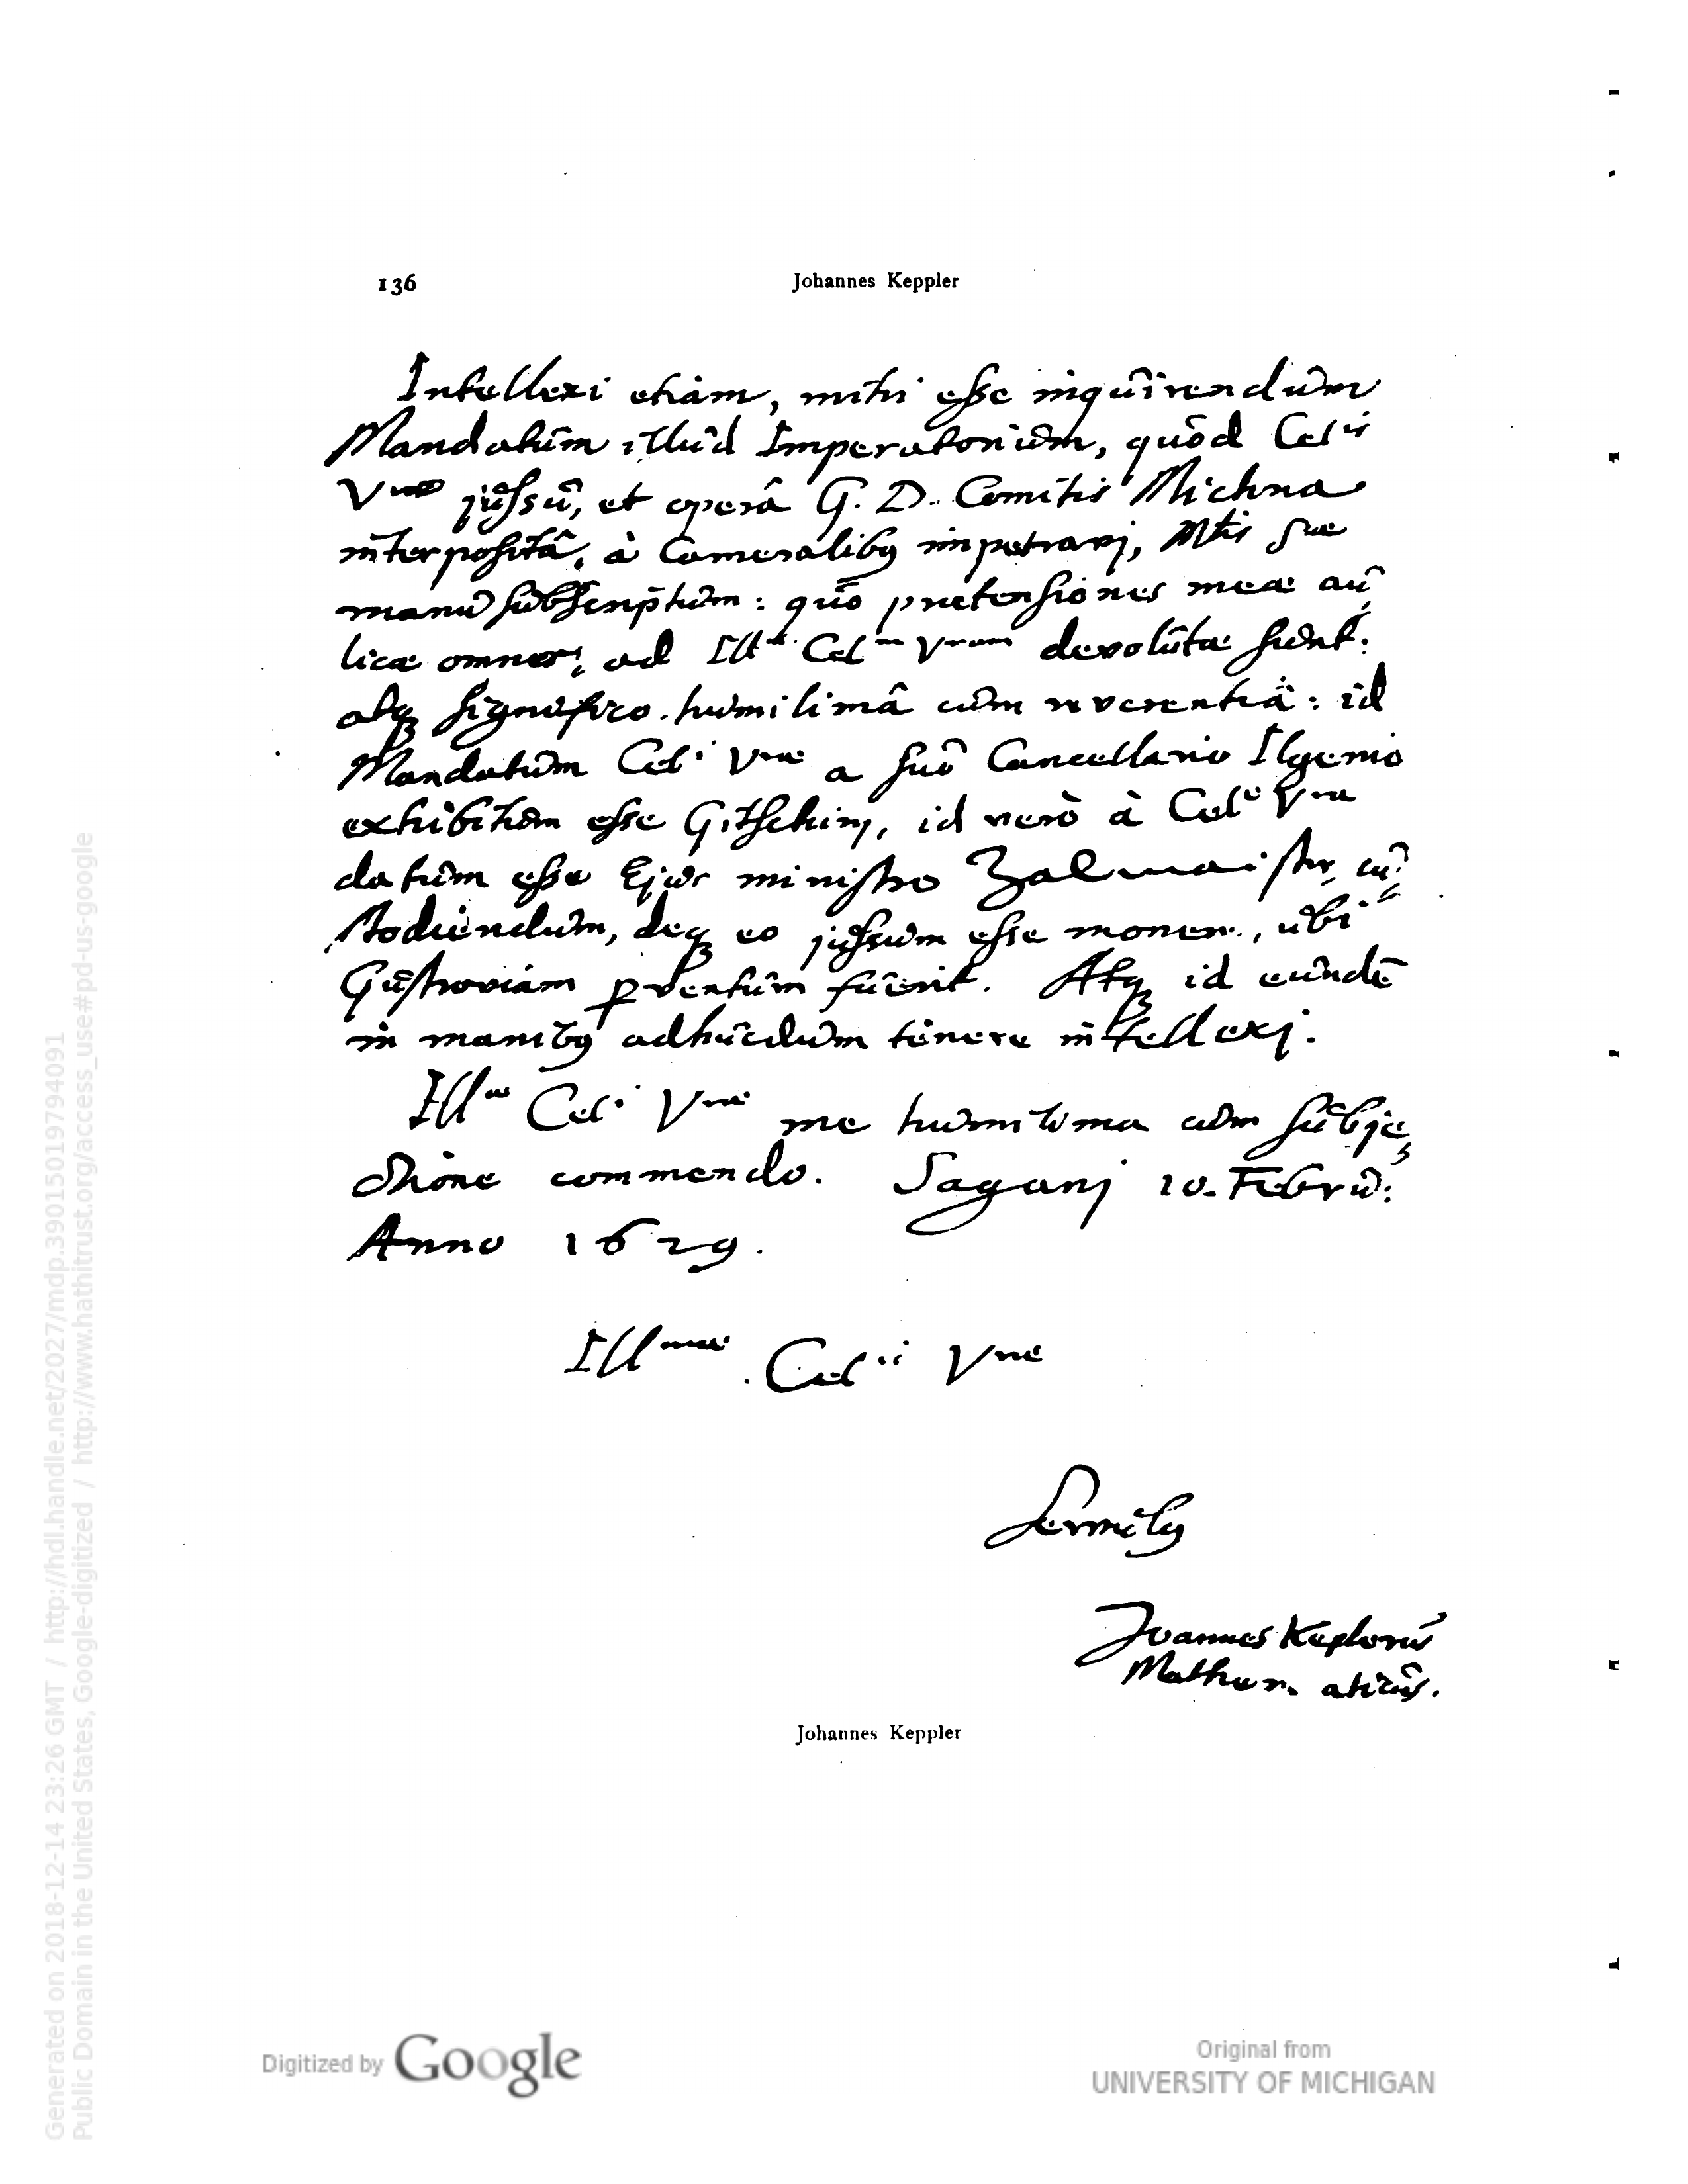 136 Johannes Keppler
Intellexi etiam, mihi esse inquirendum
Mandatum illud Imperatorium, quod Cel.is
Vrae jussu, et operâ G. D. Comitis Michna
interpositâ, à Cameralibq impetravj, Mtis suae
manu subscriptum: quo pretensiones meae au,
licae omnes, ad Ill.am Cel.em Vram devolutae sunt:
atq significo humilimâ cum reverentiâ: id
Mandatum Cel.i Vrae a suo Cancellario Ilgenio
exhibitum esse Gitschinj, id verò à Cel.e Vra
datum esse Ejus ministro Zalmaister, cu,
stodiendum, deq eo jussum esse monere, ubi
Gustroviam perventum fuerit. Atq id eundē
in manibq adhucdum tenere intellexj.
Ill.ae Cel.i Vrae me humilima cum subje,
ctione commendo. Saganj 10. Febru:
Anno 1629.
Ill.mae Cel.ii Vrae
humilis
Joannes Keplerus
Mathematicus.
Johannes Keppler
Generated on 2018-12-14 23:26 GMT / http://hdl.handle.net/2027/mdp.39015019794091
Public Domain in the United States, Google-digitized / http://www.hathitrust.org/access_use#pd-us-google
Digitized by Google
Original from
UNIVERSITY OF MICHIGAN